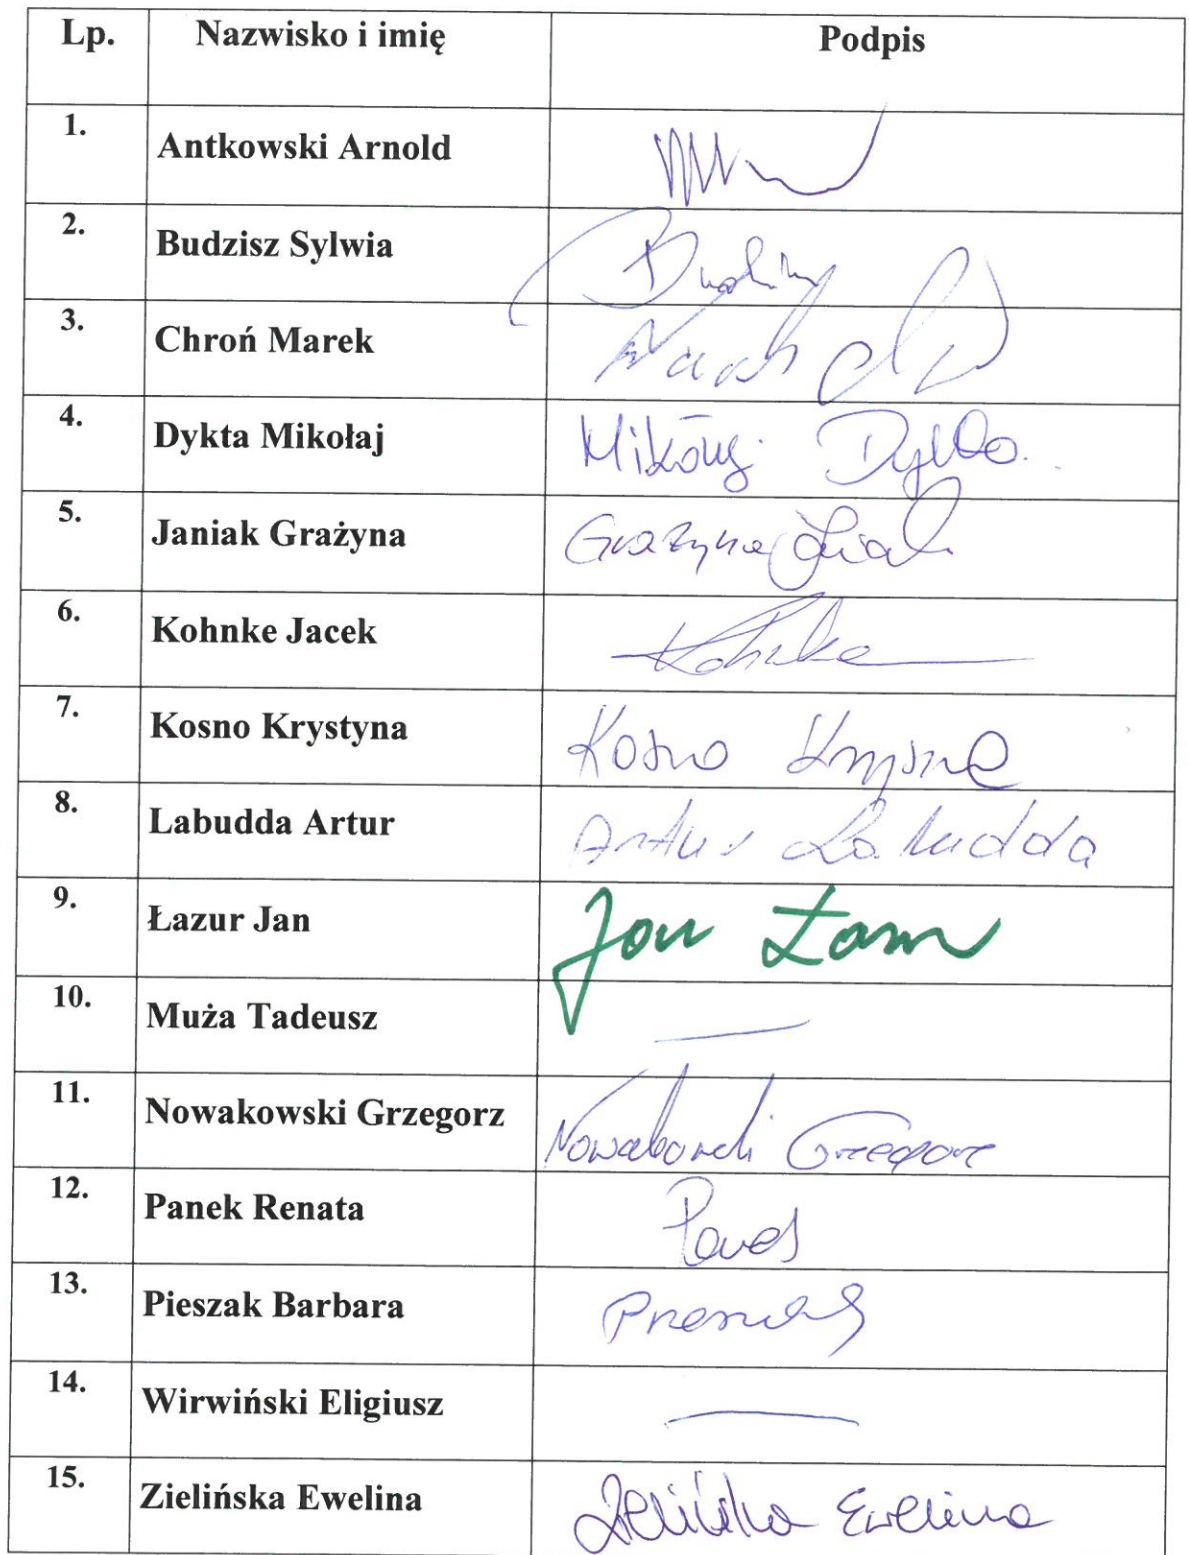 Lp. Nazwisko i imię Podpis
1. Antkowski Arnold
2. Budzisz Sylwia
3. Chroń Marek
4. Dykta Mikołaj Mikołaj Dykta
5. Janiak Grażyna Grażyna
6. Kohnke Jacek Kohnke
7. Kosno Krystyna Kosno Krystyna
8. Labudda Artur Artur Labudda
9. Łazur Jan Jan Łazur
10. Muża Tadeusz
11. Nowakowski Grzegorz Nowakowski Grzegorz
12. Panek Renata
13. Pieszak Barbara
14. Wirwiński Eligiusz
15. Zielińska Ewelina Zielińska Ewelina